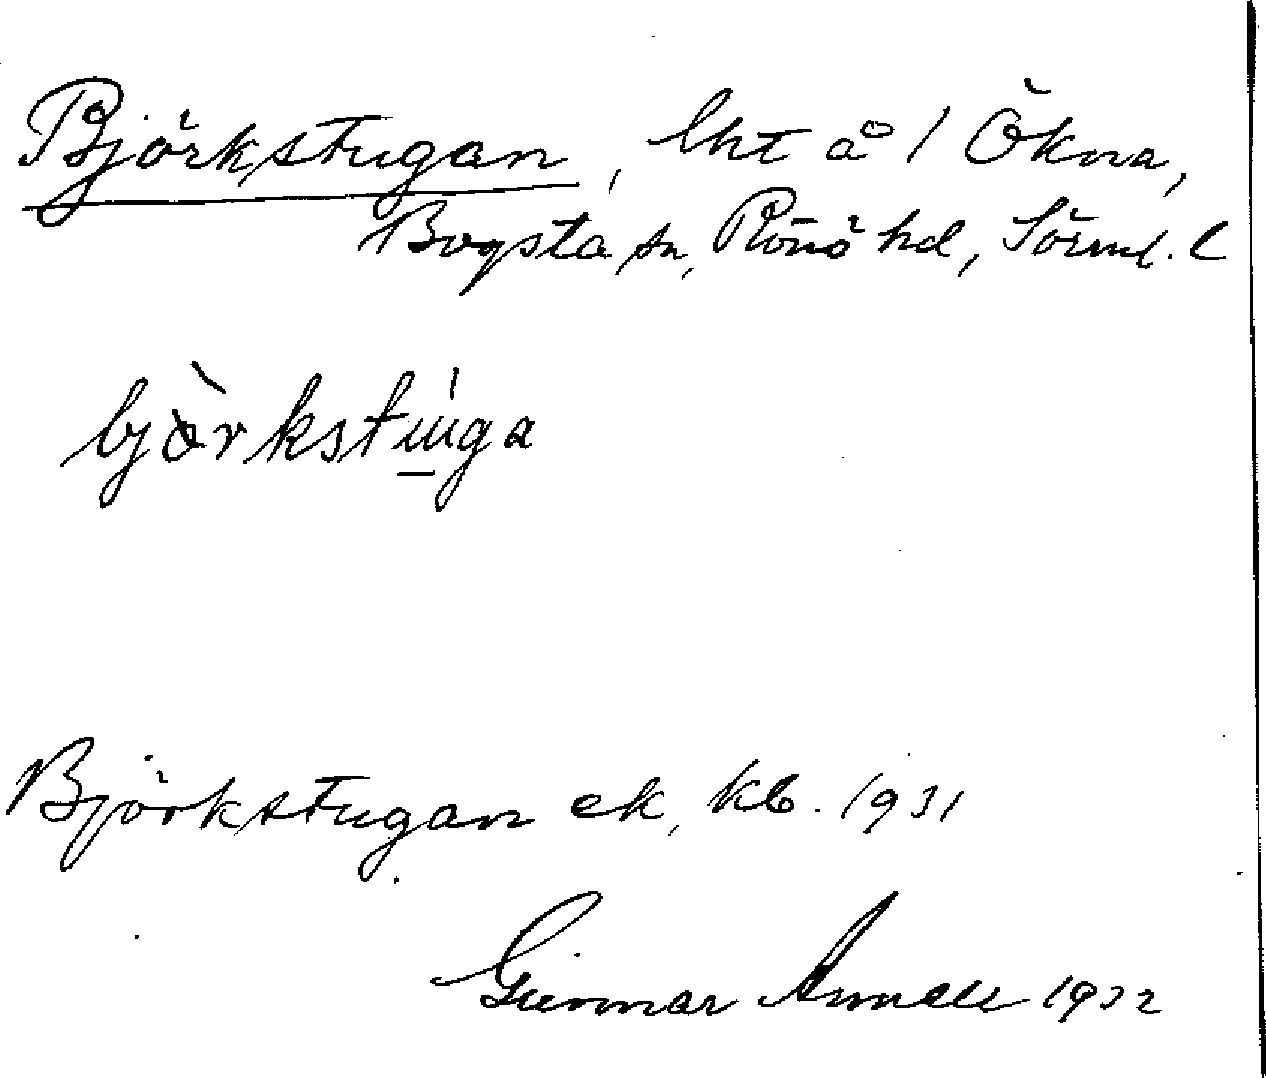 Björkstugan, lht å 1 Ökna,
Bogsta sn, Rönö hd, Sörml. l
bjö̀rkstu̱̍ga
Björkstugan ek, kb. 1931
Gunnar 1932